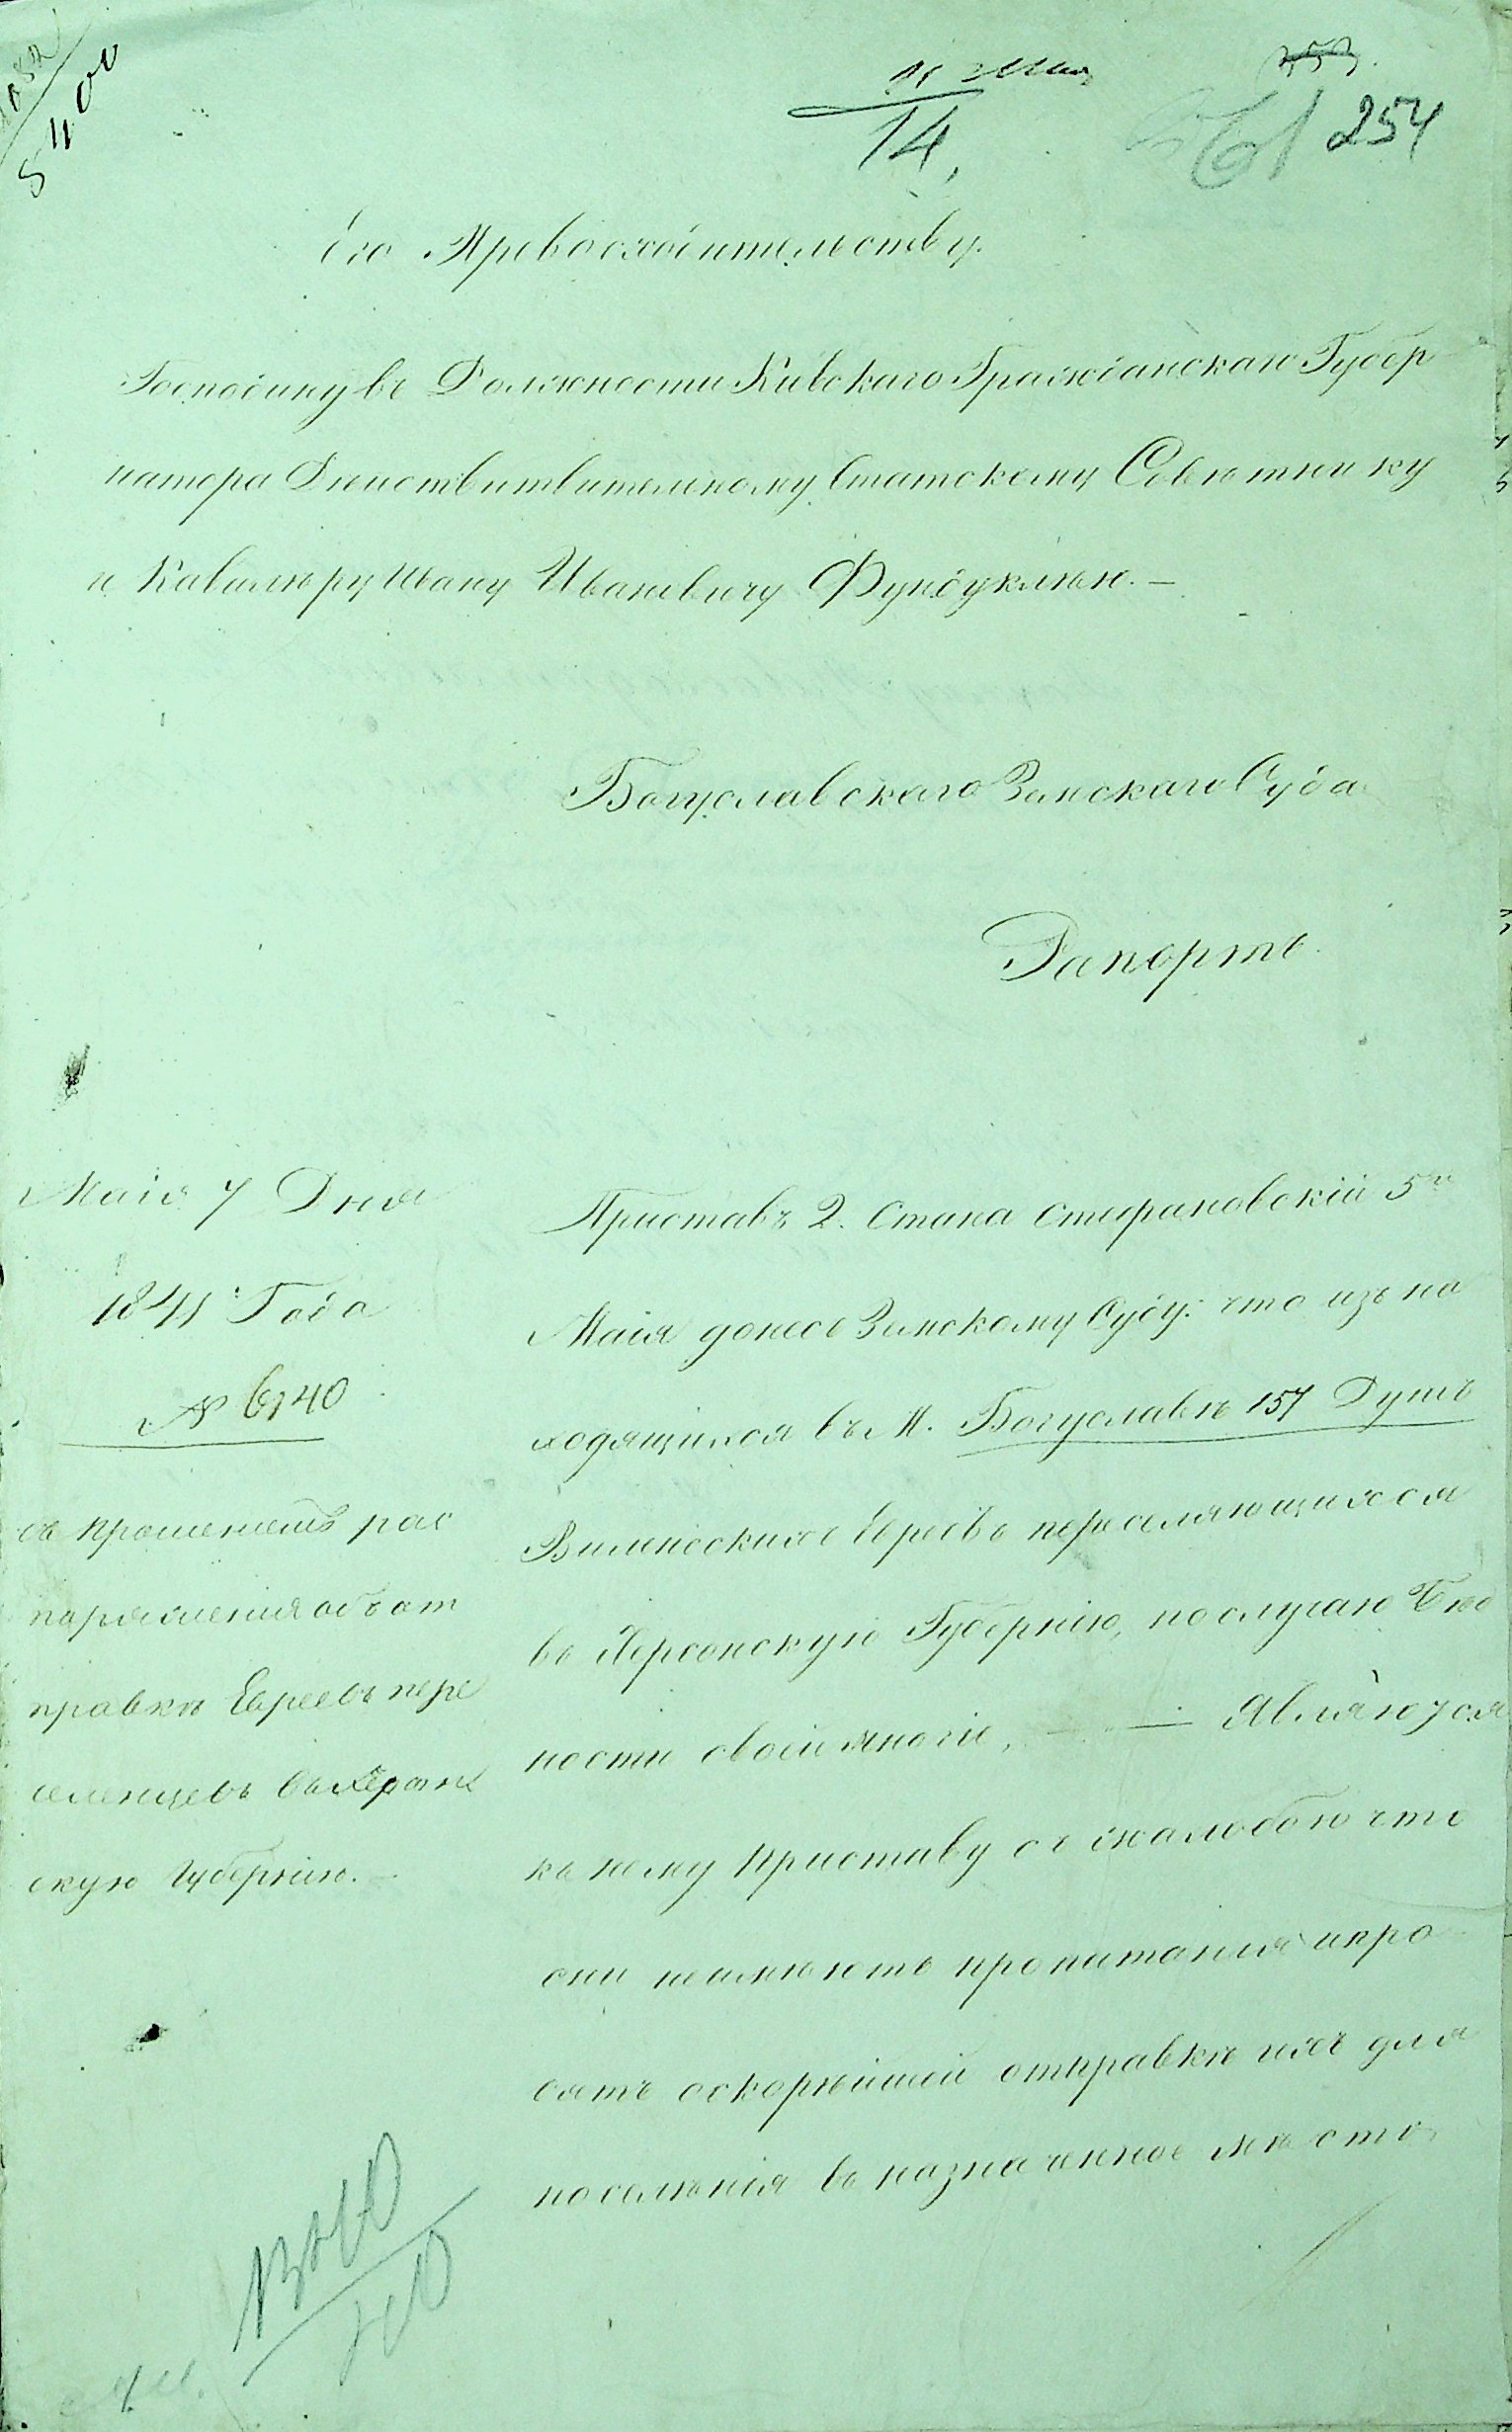 11 Мая
14.
353.
254
5400
Его Превосходительству.
Господину въ Должности Кіевскаго Гражданскаго Губер
натора Дѣйствитвительному Статскому Совѣтнику
и Кавалѣру Ивану Ивановичу Фундуклѣю. —
Богуславскаго Земскаго Суда
Рапортъ.
Маія 7 Дня
1841 Года
№ 6140
съ прошеніемъ рас
поряженія объ от
правкѣ Евреевъ пере
селенцевъ въ Херсон
скую Губернію. —
Приставъ 2. Стана Стефановскій 5го
Маія донесъ Земскому Суду: что изъ на
ходящихся въ М. Богуславѣ 157 Душъ
Виленскихъ Евреевъ переселяющихся
въ Херсонскую Губернію, по случаю Бѣд
ности своей многіе, — — Являются
къ нему Приставу съ жалобою что
они неимѣютъ пропитанія и про
сятъ о скорѣйшей отправкѣ ихъ для
поселѣнія въ назначенное мѣсто